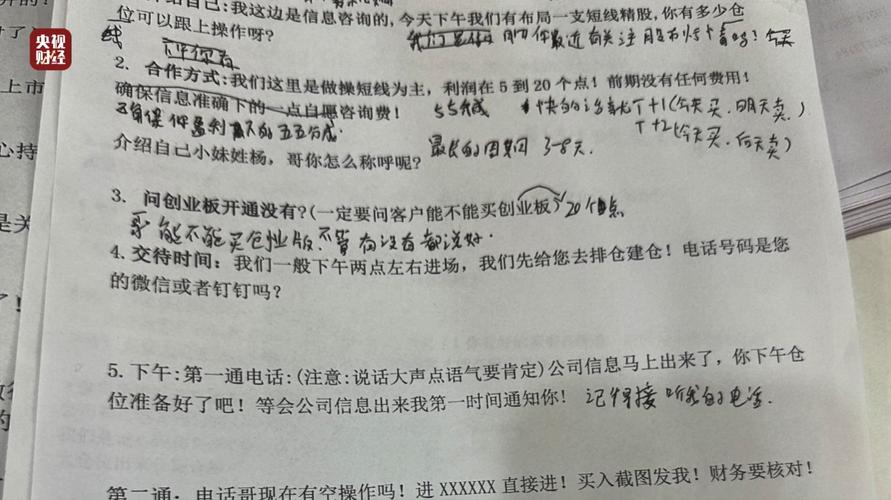 央视
财经
绍自己:我这边是信息咨询的,今天下午我们有布局一支短线精股,你有多少仓
位可以跟上操作呀?
线
2. 合作方式:我们这里是做操短线为主,利润在 5 到 20 个点!前期没有任何费用!
确保信息准确下的一点自愿咨询费! 55分成 快的话就T+1(今天买.明天卖.)
T+2(今天买.后天卖)
介绍自己小妹姓杨,哥你怎么称呼呢? 最长的周期 3-8天.
3. 问创业板开通没有?(一定要问客户能不能买创业板) 20个点
能不能买创业版.不管有没有都说好.
4. 交待时间:我们一般下午两点左右进场,我们先给您去排仓建仓!电话号码是您
的微信或者钉钉吗?
5. 下午:第一通电话:(注意:说话大声点语气要肯定)公司信息马上出来了,你下午仓
位准备好了吧!等会公司信息出来我第一时间通知你! 记得接听我的电话.
第二通:电话哥现在有空操作吗!进 XXXXXX 直接进!买入截图发我!财务要核对!
上市
心持
是关
的